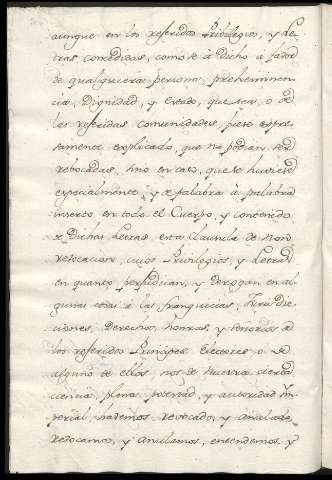 aunque en los referidos Privilegios, y Le
tras concedidas, como se à dicho à fabor
de qualquiera persona, preheminen
cia, Dignidad, y Estado, que sea, o de
las referidas comunidades, fuese expre
samente explicado, que no podian ser
rebocadas, sino en caso, que se huviese
especialmente, y de palabra à palabra
inserto en todo el Cuerpo, y contenido
de Dichas Letras esta Clausula de Non
revocacion, cuios Privilegios, y Letras
en quanto perjudican, y Derogan en al
gunas cosas à las franquicias, Jurisdic
ciones, Derechos, honras, y feudos de
los referidos Principes Electores o de
alguno de ellos, nos de nuestra cierta
ciencia, plena potestad, y autoridad Ym
perial, havemos revocado, y anulado,
revocamos, y anulamos, entendemos y